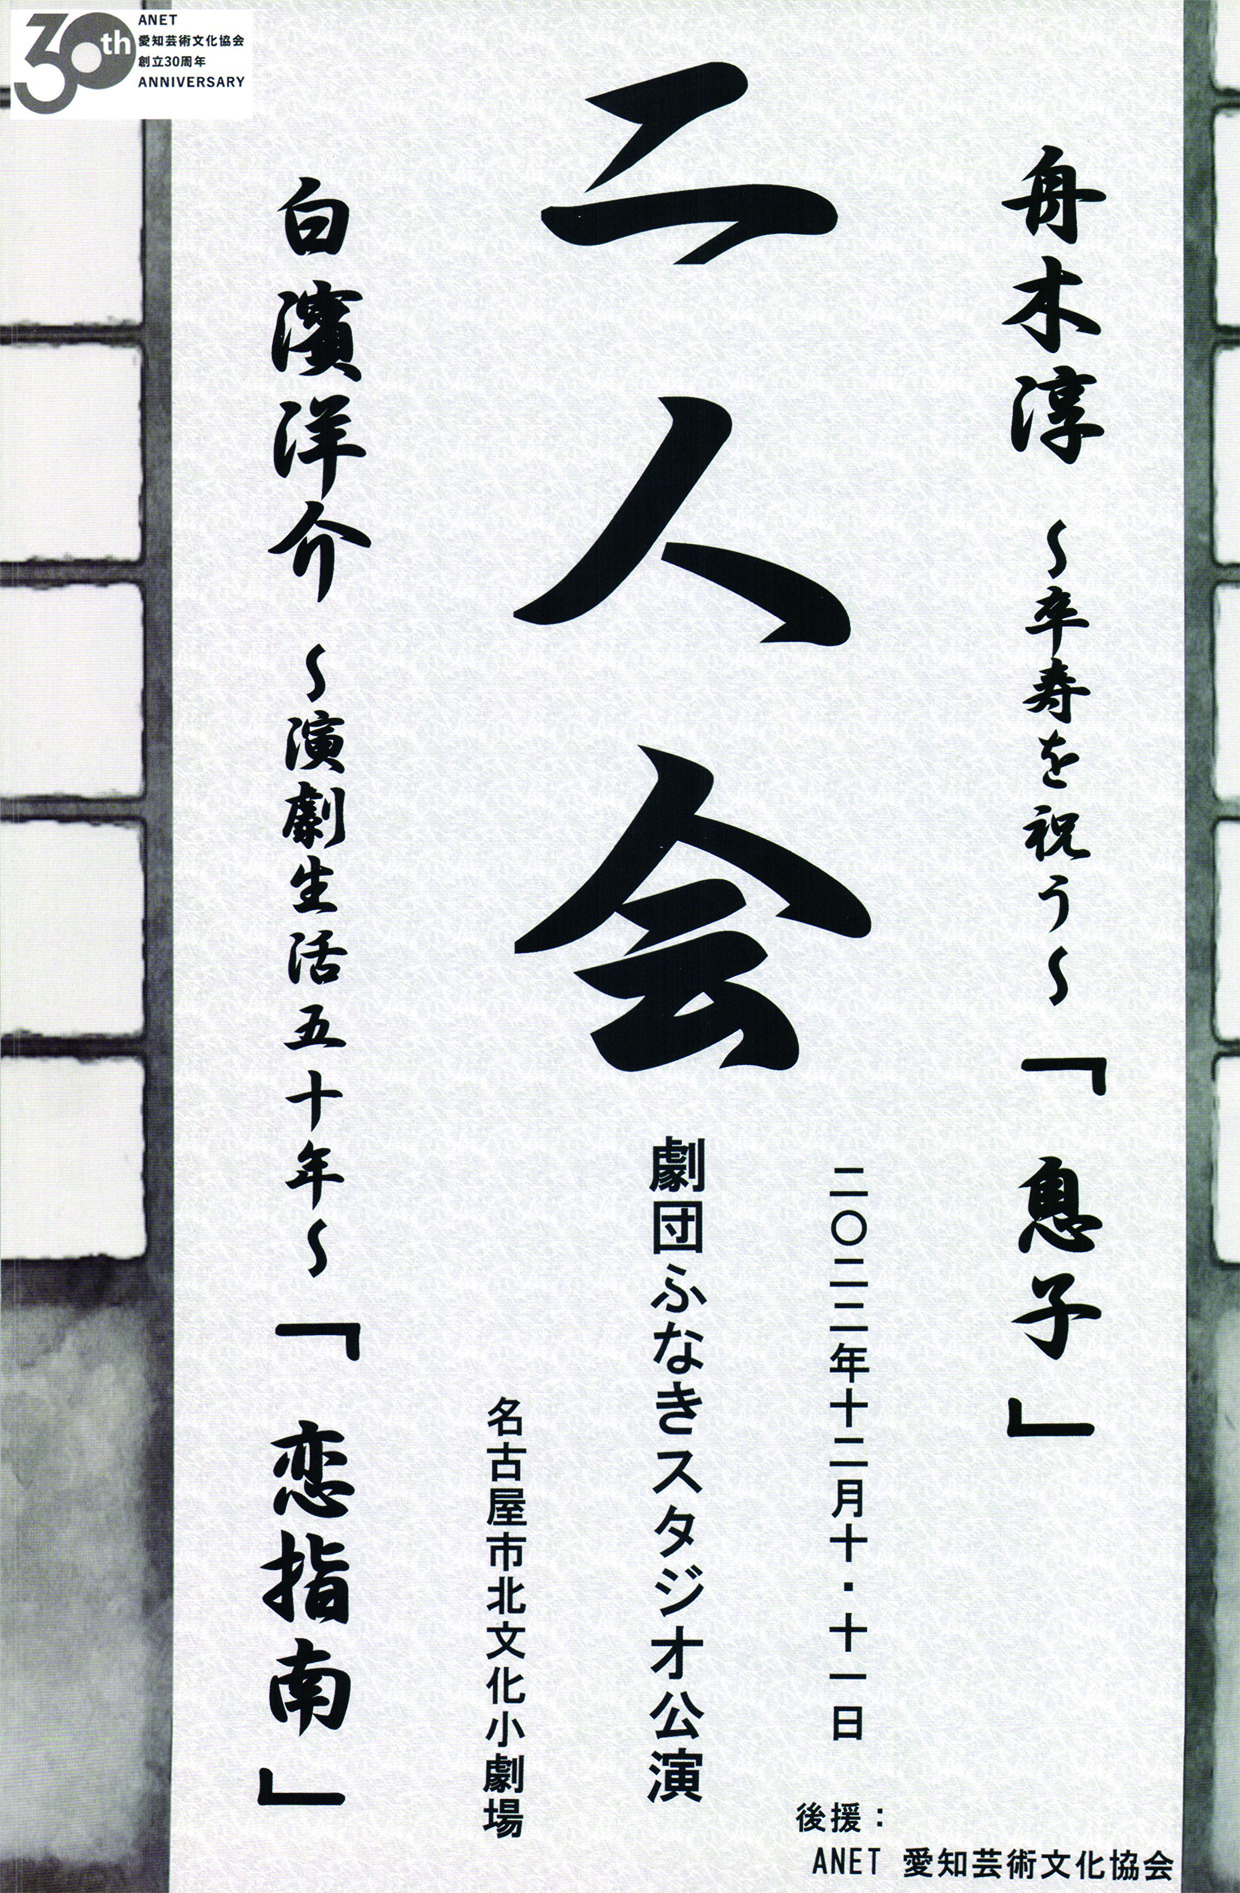 30th
ANET
愛知芸術文化協会
創立30周年
ANNIVERSARY
舟木淳 〜卒寿を祝う〜 「 息子 」
二人会
白濱洋介 〜演劇生活五十年〜 「 恋指南 」
二〇二二年十二月十・十一日
劇団ふなきスタジオ公演
名古屋市北文化小劇場
後援：
ANET 愛知芸術文化協会